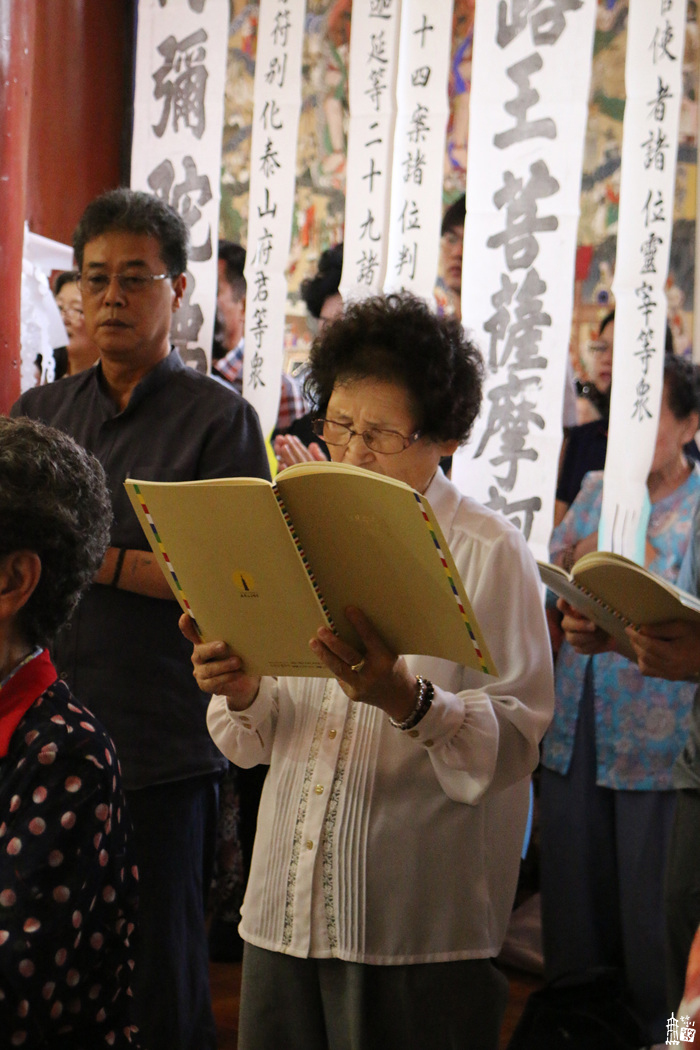 彌陀佛
符別化泰山府君等衆
迦延等二十九諸
十四案諸位判
路王菩薩摩訶
使者諸位靈宰等衆